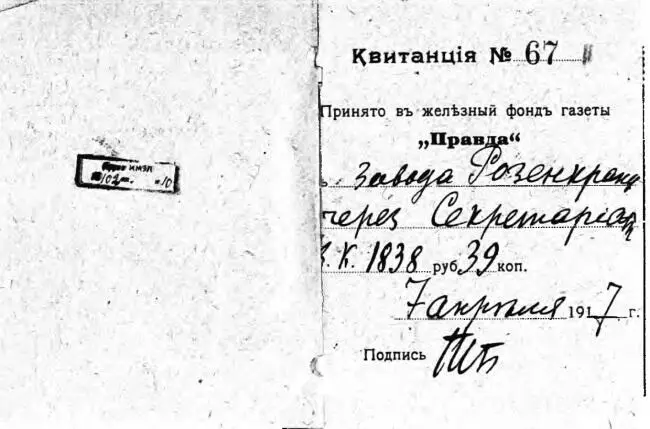 Квитанція № 67
Принято въ желѣзный фондъ газеты
„Правда“
завода Розенкранц
через Секретаріат
З. К. 1838 руб. 39 коп.
7 апрѣля 1917 г.
Подпись